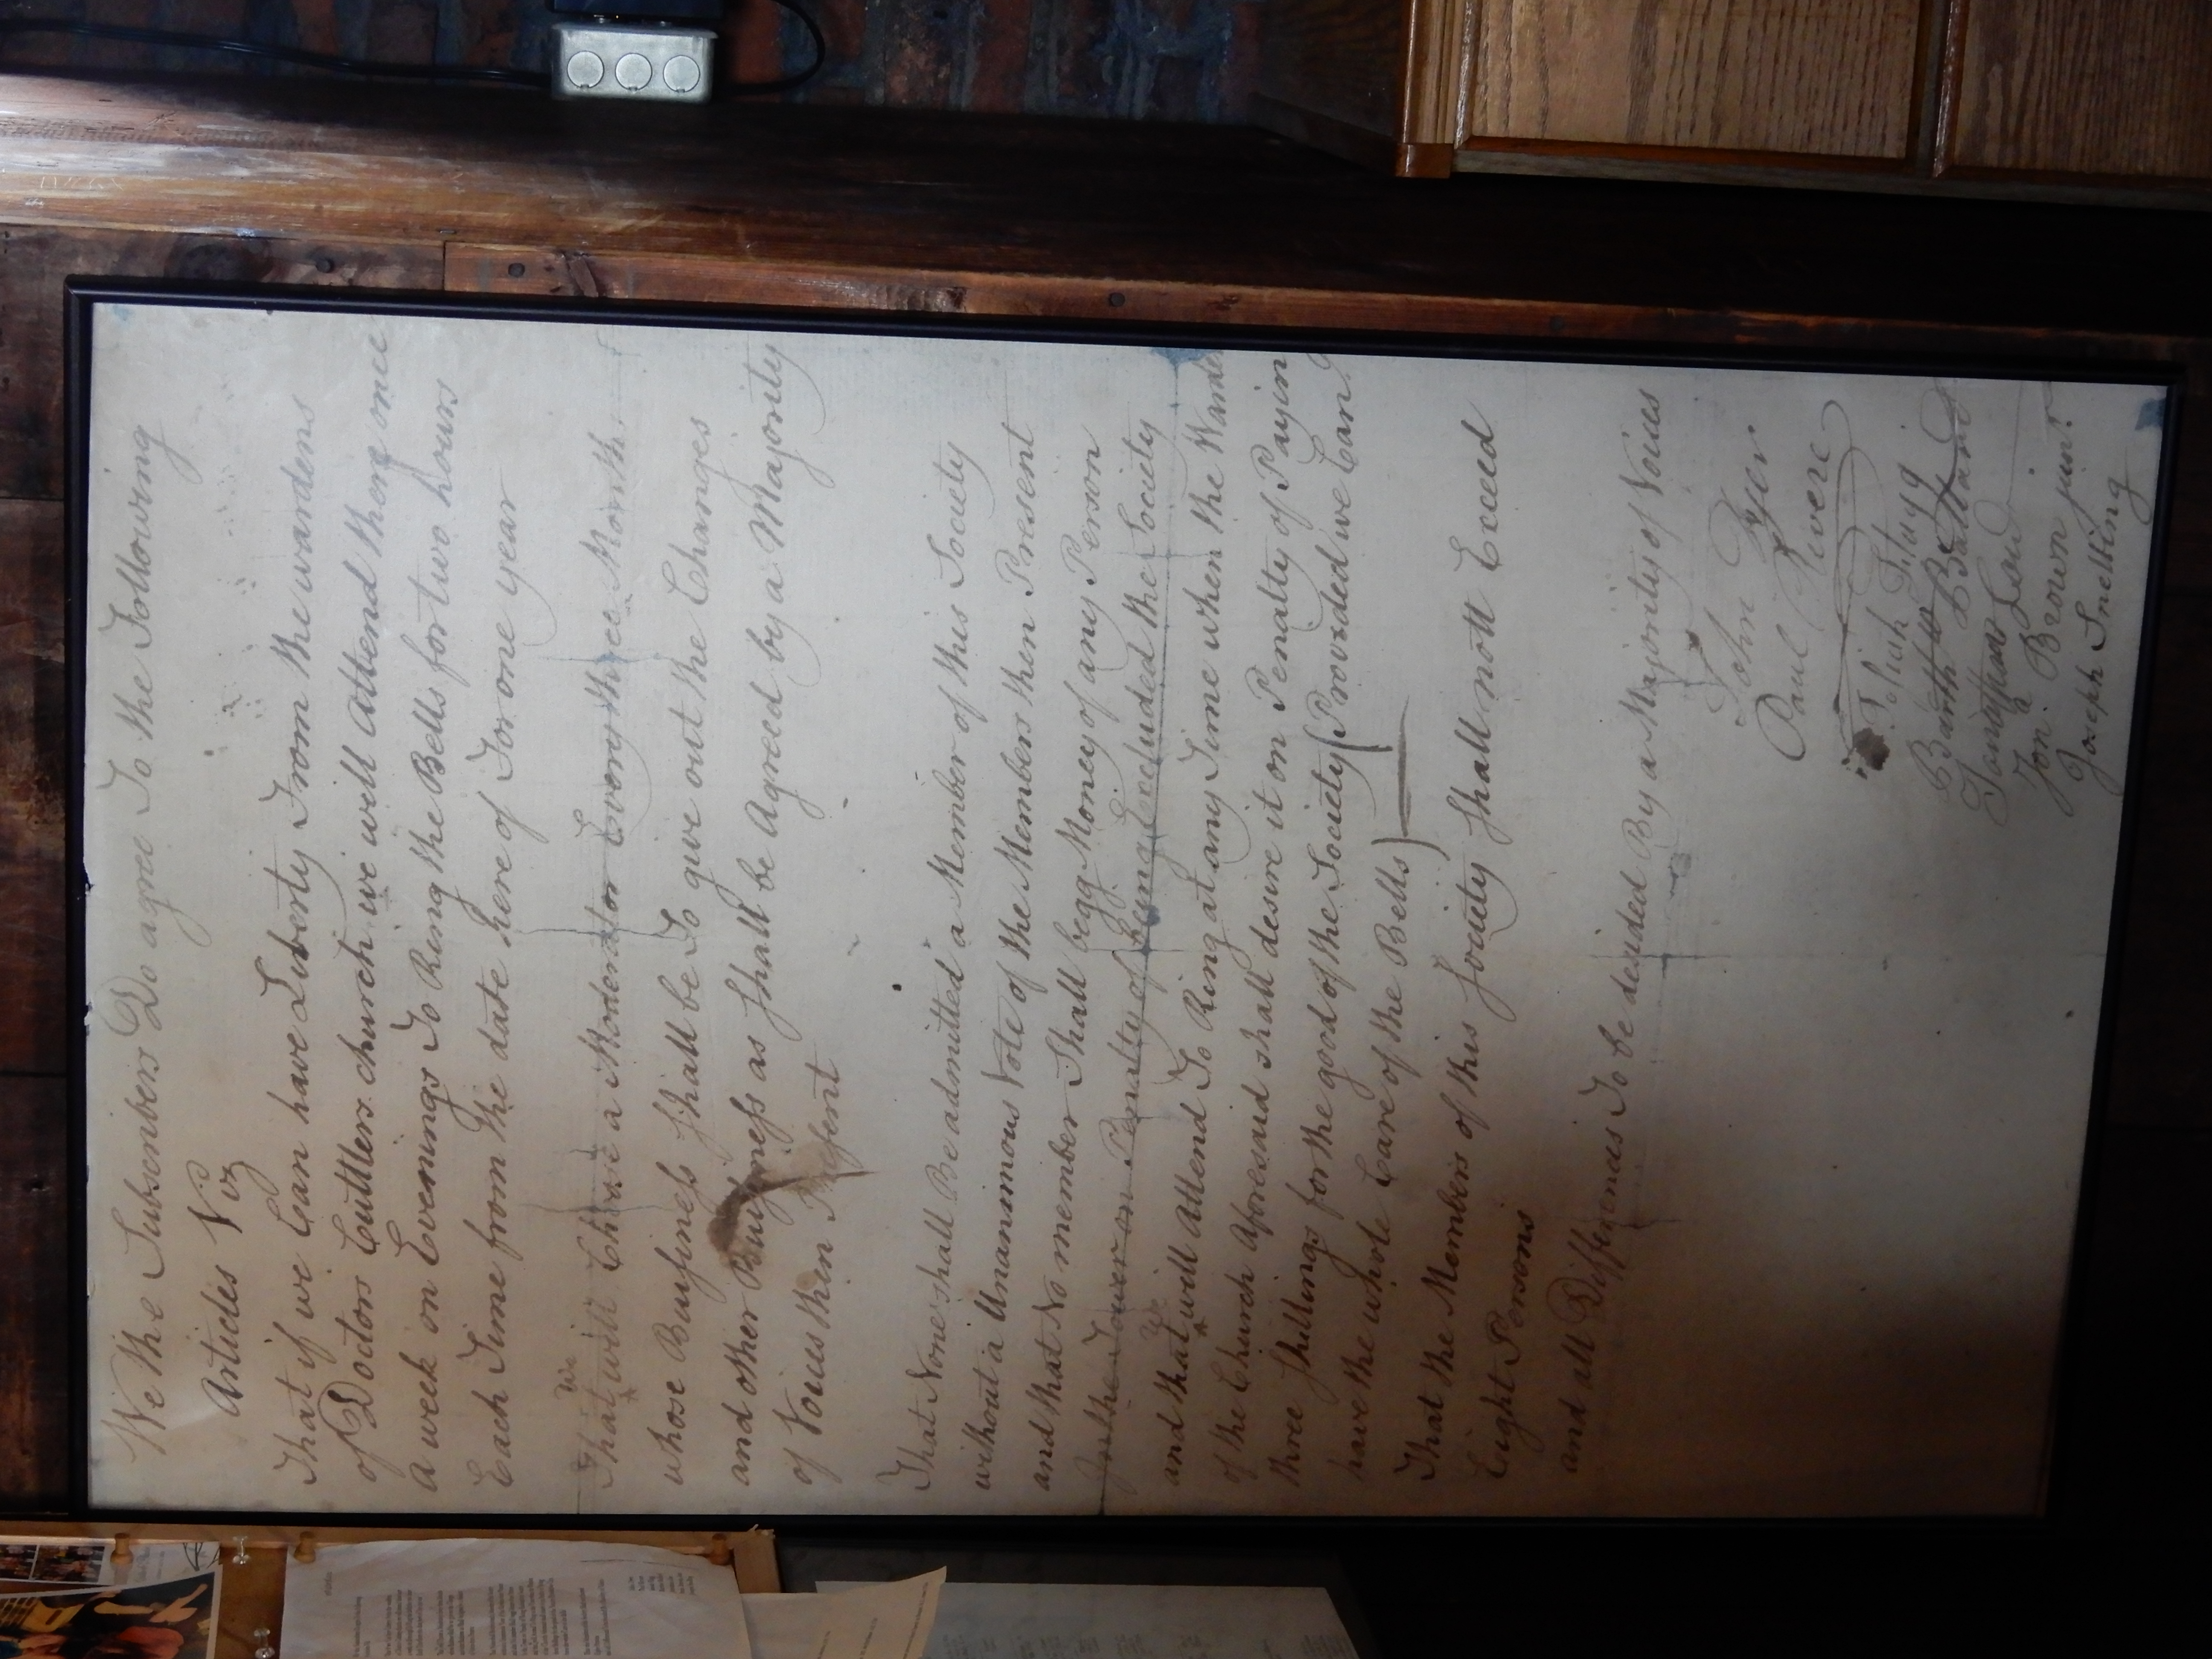 We the Subscribers Do agree To the Following
Articles Viz
That if we Can have Liberty From the wardens
of Doctors Cuttlers church we will attend there once
a week on Evenings To Ring the Bells for two hours
Each Time from the date here of For one year
That we will Chuse a Moderator Every three Months
whose Business shall be To give out the Changes
and other Business as Shall be Agreed by a Majority
of Voices then Present
That None shall Be admitted a Member of this Society
without a Unanimous Vote of the Members then Present
and that No member Shall begg Money of any Person
In the Tower on Penalty of Being Excluded the Society
and that we will Attend To Ring at any Time when the Warden
of the Church Aforesaid shall desire it on Penalty of Paying
three Shillings for the good of the Society (Provided we Can
have the whole Care of the Bells)
That the Members of this Society Shall nott Exceed
Eight Persons
and all Differences To be desided By a Majority of Voices
John Dyer
Paul Revere
Josiah Flagg
Barth<sup>w</sup> Ballard
Jonathan Law
Jon<sup>a</sup> Brown jun<sup>r</sup>
Joseph Snelling